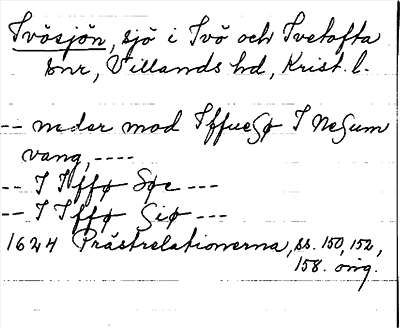 Ivösjön, sjö i Ivö och Ivetofta
snr, Villands hd, Krist. l.
-- neder mod Iffueſø I Neſum
vang, ----
-- I Iffø Søe ---
-- I Iffø Siø ---
1624 Prästrelationerna, ss. 150, 152,
158. orig.